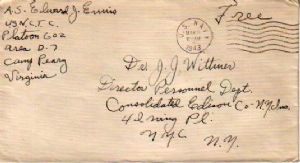 A.S. Edward J. Ennis
USNCTC
Platoon 602
Area D-7
Camp Peary
Virginia
U.S. NAVY
1943
Free
Dr. J. J. Wittmer
Director Personnel Dept.
Consolidated Edison Co. N.Y. Inc.
4 Irving Pl.
NYC
N.Y.